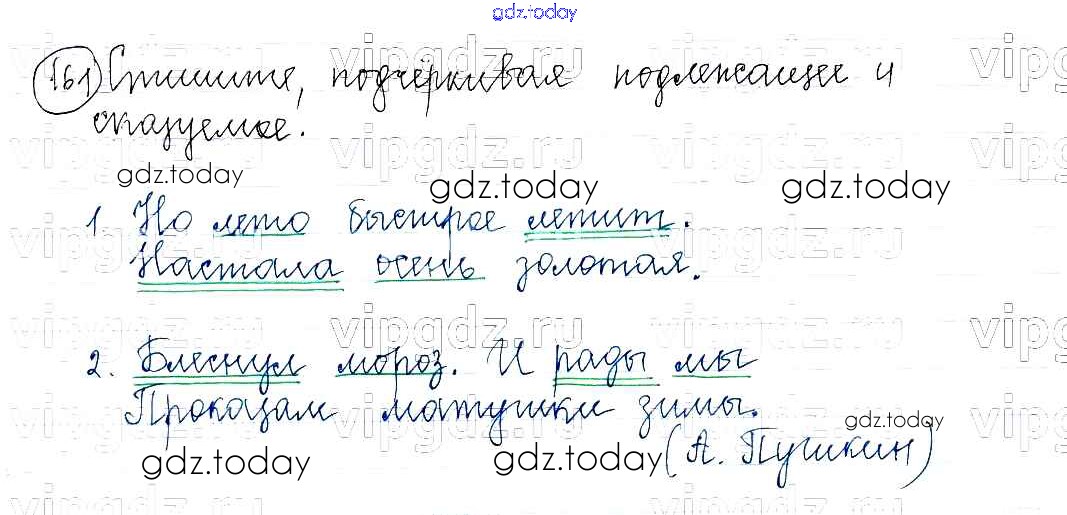 gdz.today
161 Спишите, подчёркивая подлежащее и
сказуемое.
gdz.today gdz.today gdz.today
1. Но лето быстрое летит.
Настала осень золотая.
vipgdz.ru vipgdz.ru
2. Блеснул мороз. И рады мы
Проказам матушки зимы.
gdz.today
(А. Пушкин)
gdz.today gdz.today